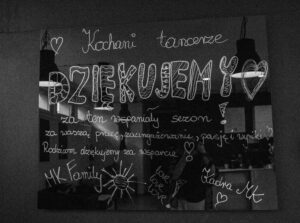 Kochani tancerze
DZIĘKUJEMY
za ten wspaniały sezon!
za waszą pracę, zaangażowanie, pasję i wyniki
Rodzicom dziękujemy za wsparcie
MK Family
Kadra MK